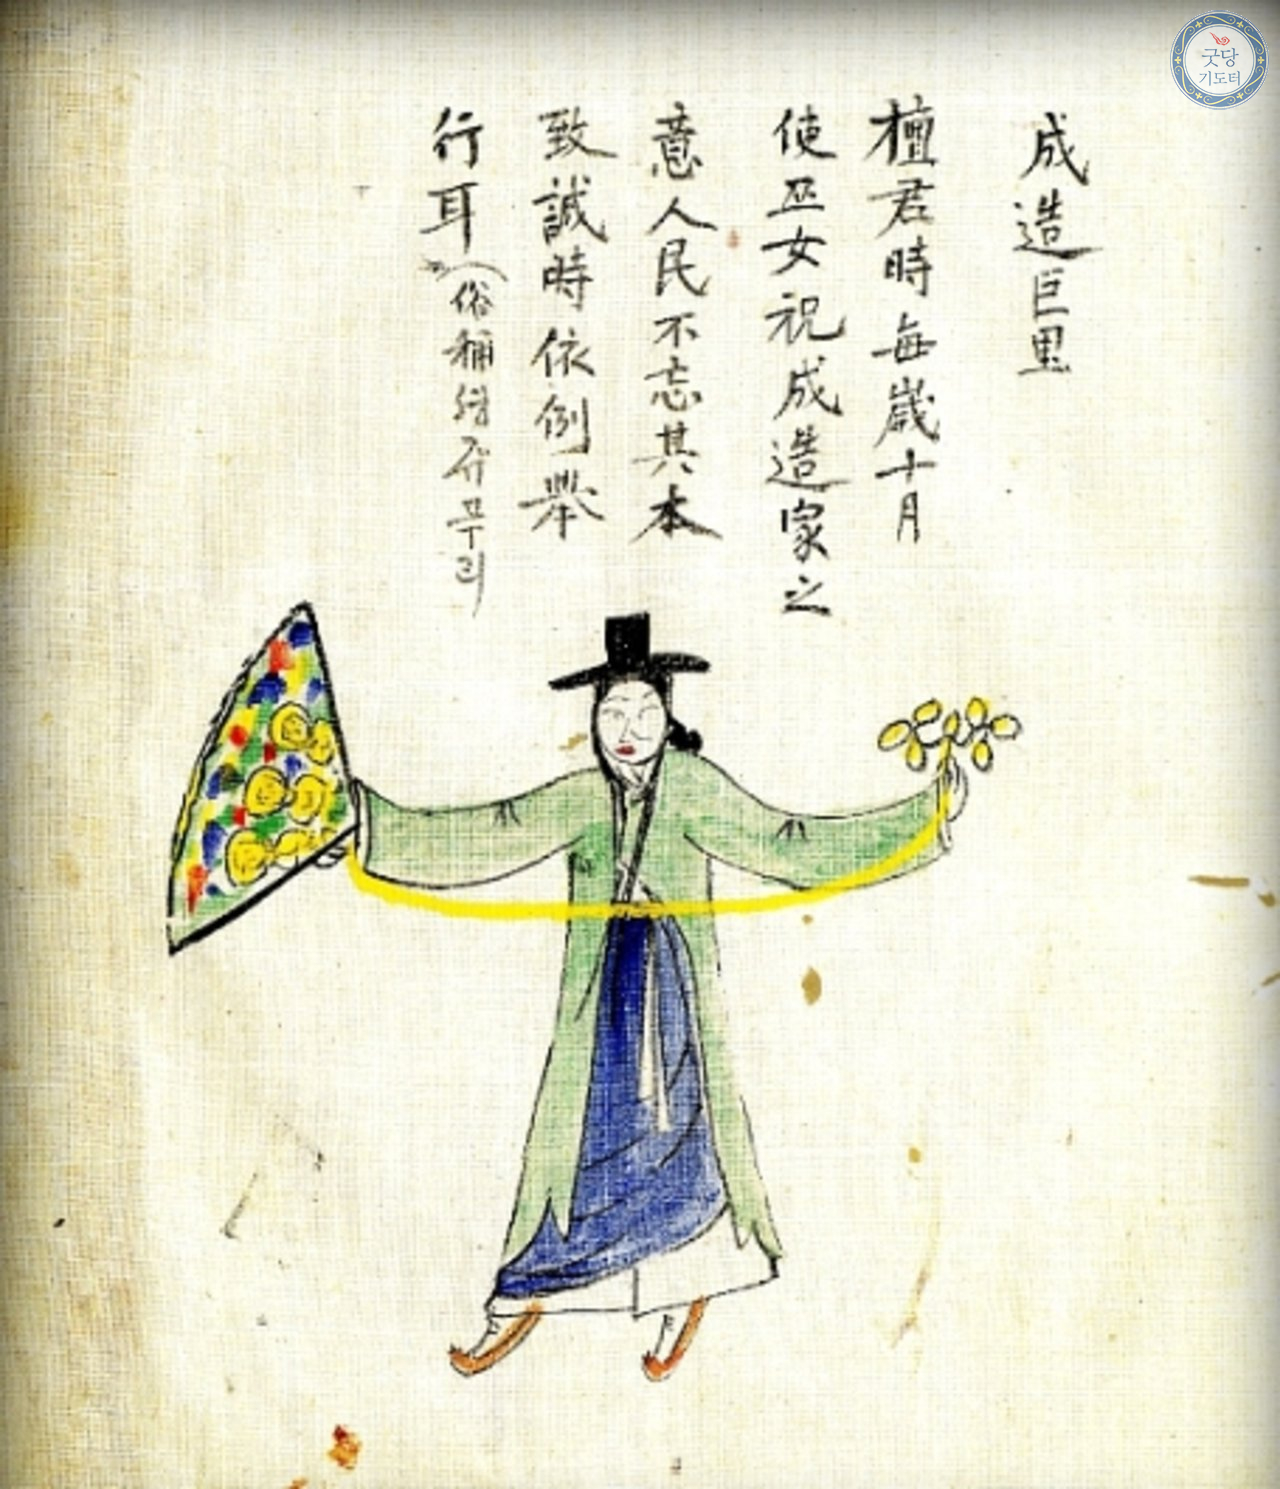 成造巨里
檀君時每歲十月
使巫女祝成造家之
意人民不忘其本
致誠時依例舉
行耳(俗稱셩쥬푸리
굿당
기도터